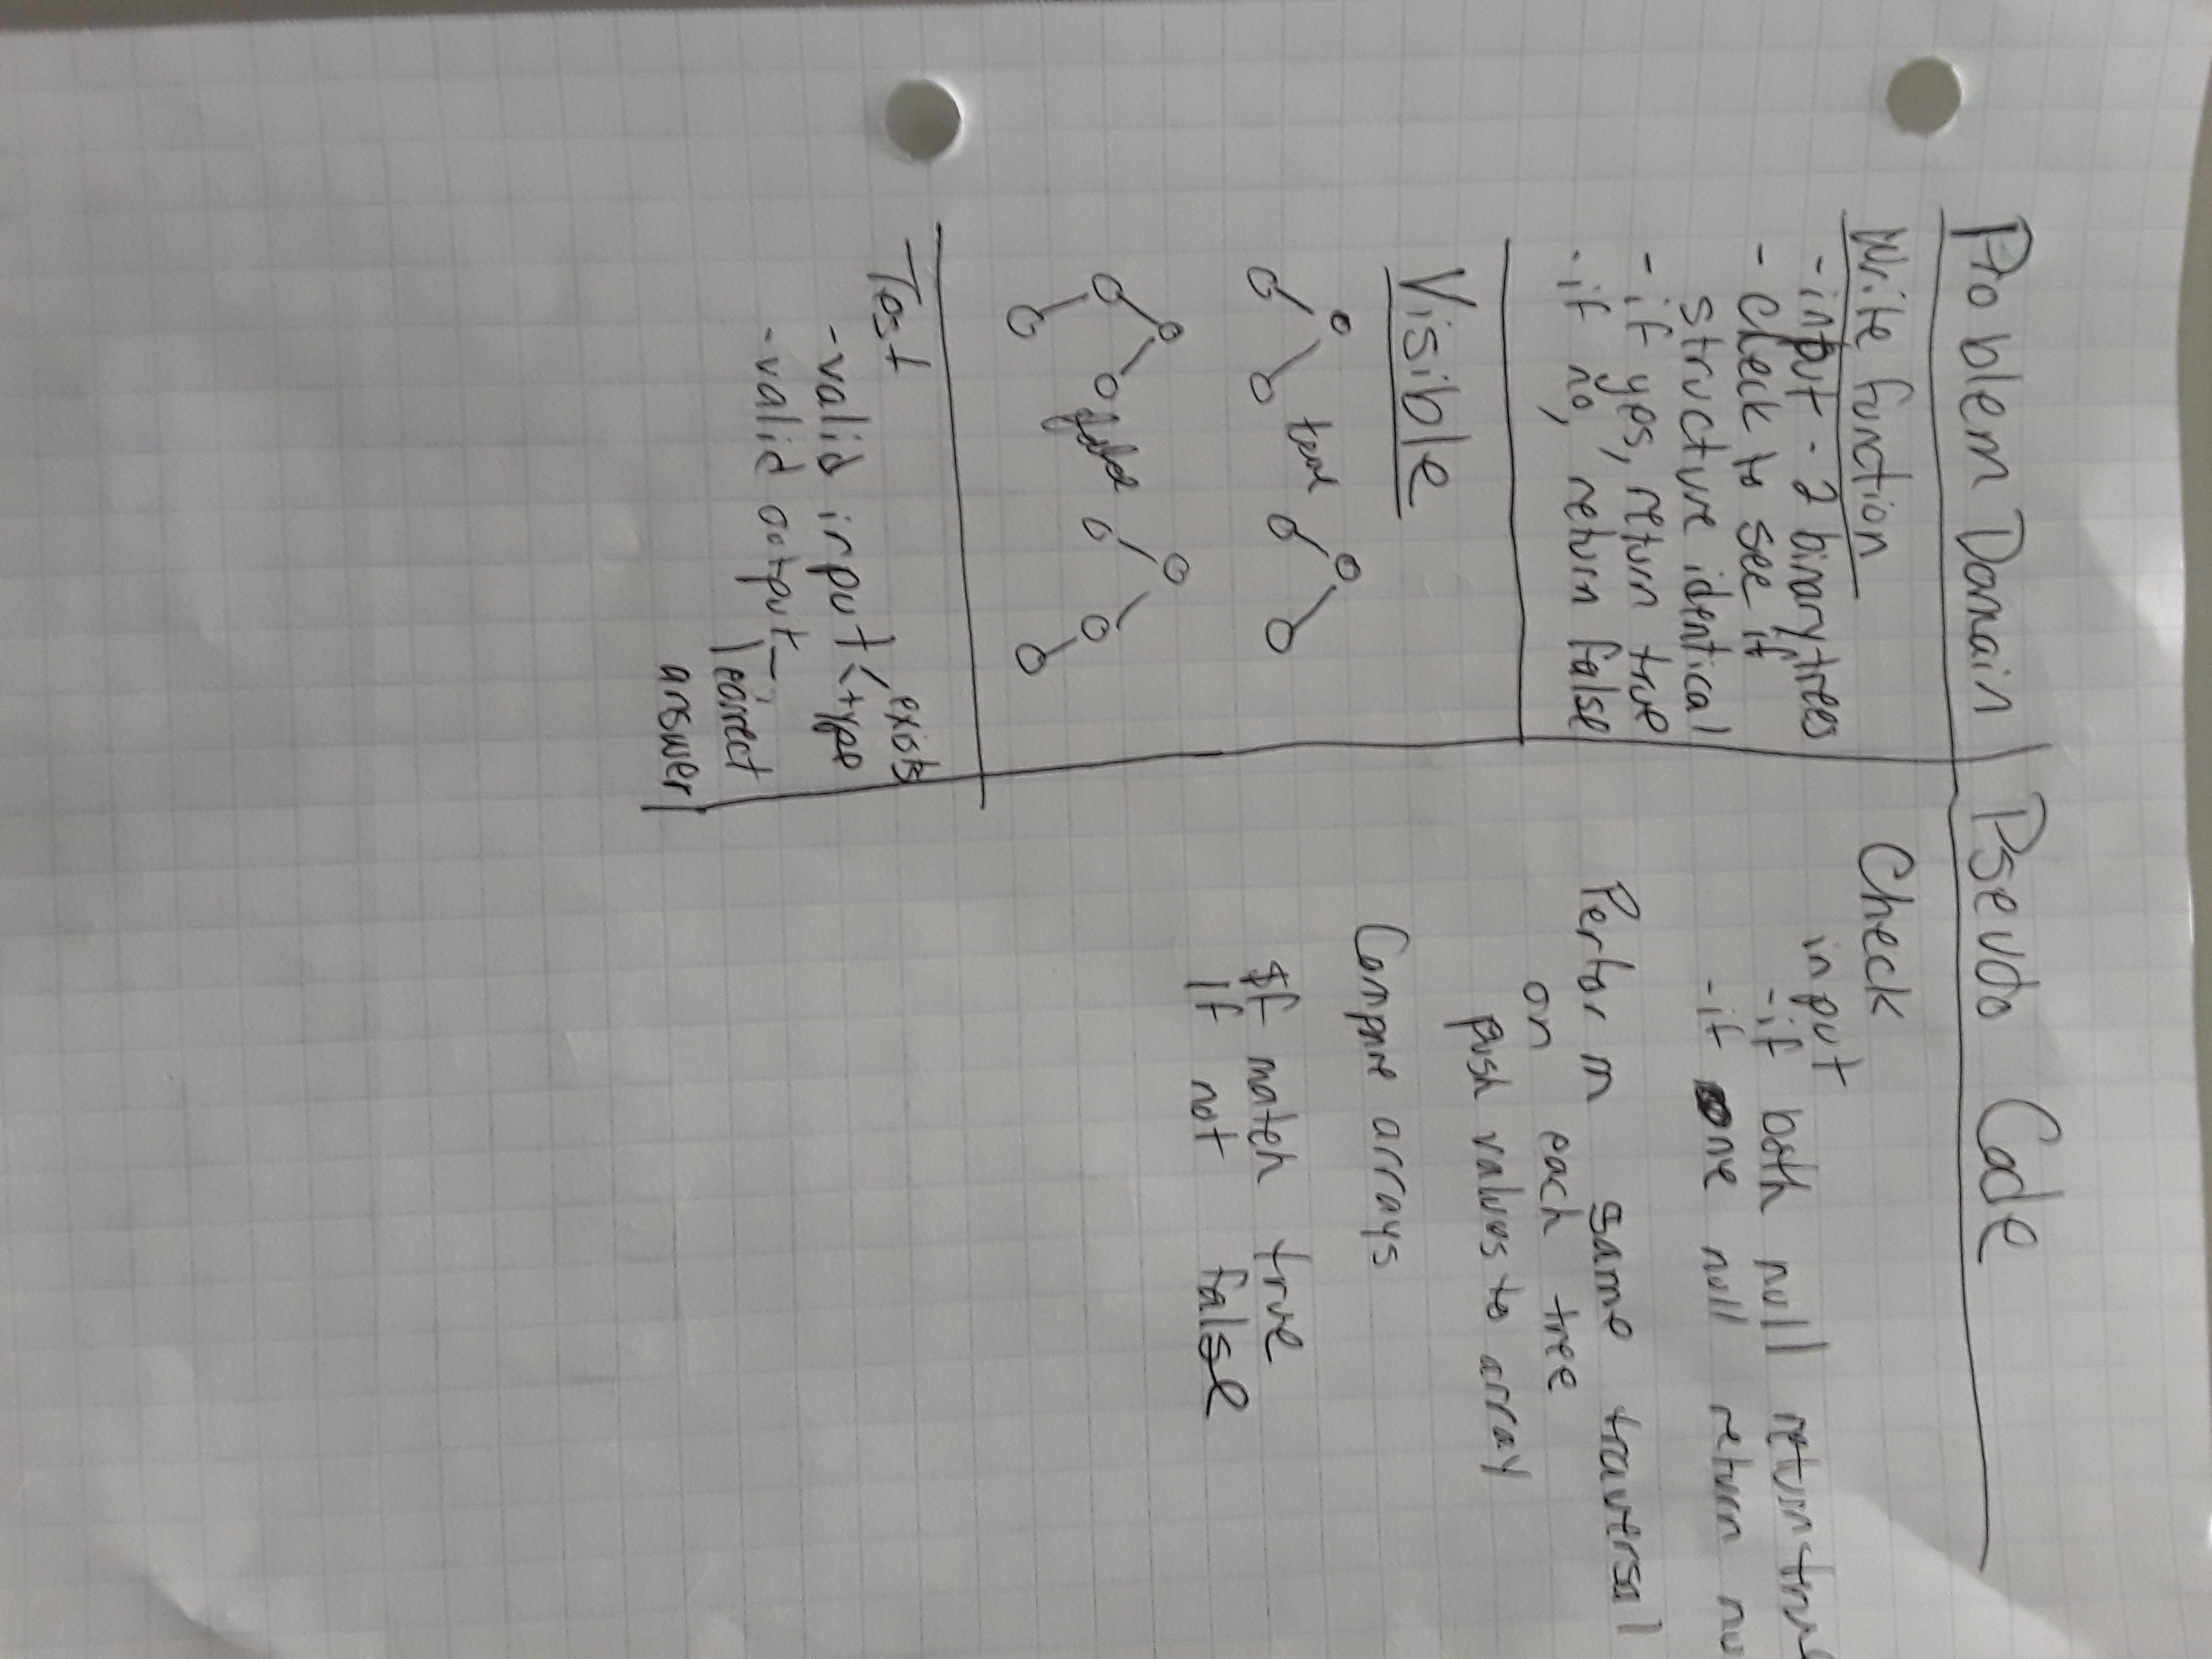 Problem Domain
Write function
- input - 2 binary trees
- check to see if
structure identical
- if yes, return true
- if no, return false
Visible
true
false
Test
- valid input
exists
type
- valid output -
correct
answer
Pseudo Code
Check
input
- if both null return true
- if one null return
Perform same traversal
on each tree
push values to array
Compare arrays
If match true
If not false